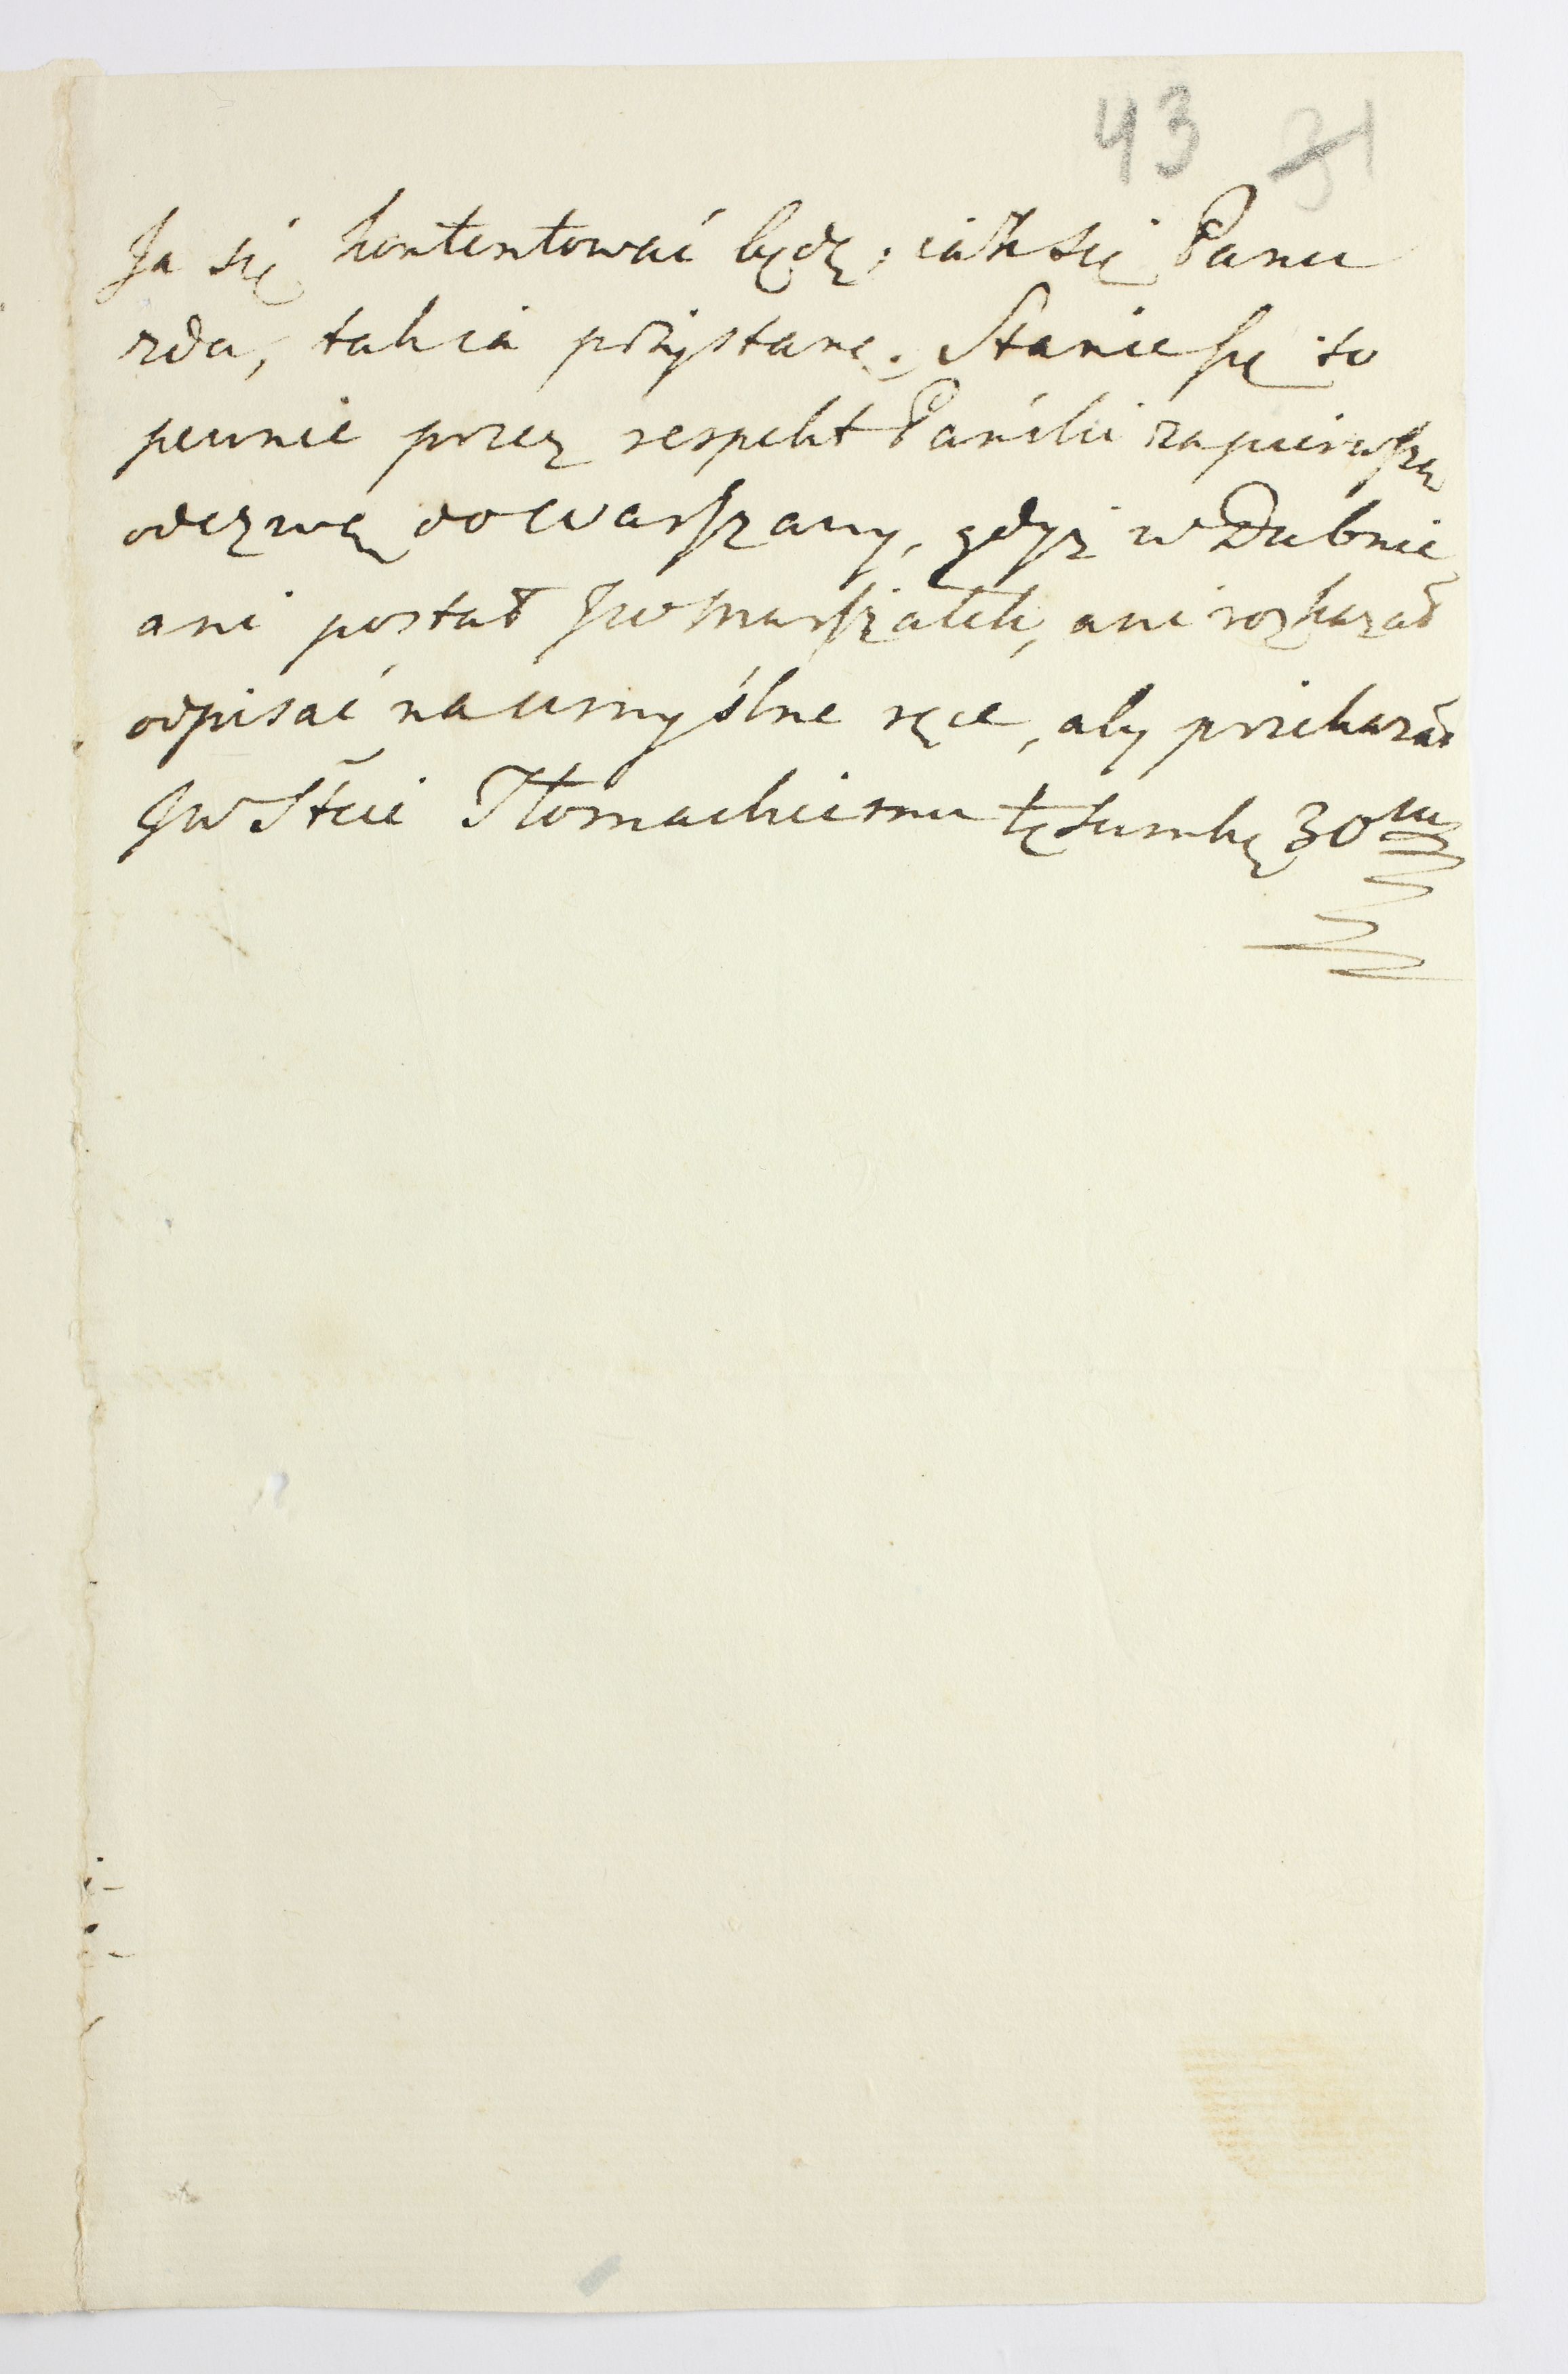 43 31
Ja się kontentować będę, iak się Panu
zda, tak ia przystanę. Stanie się to
pewnie przez respekt Pański za pierwszą
odezwą do Warszawy, gdyż w Dubnie
ani postał JW Marszałek, ani rozkazał
odpisać na umyślne ręce, aby przekazał
JW Stcie Tłomackiemu tę sumkę 30